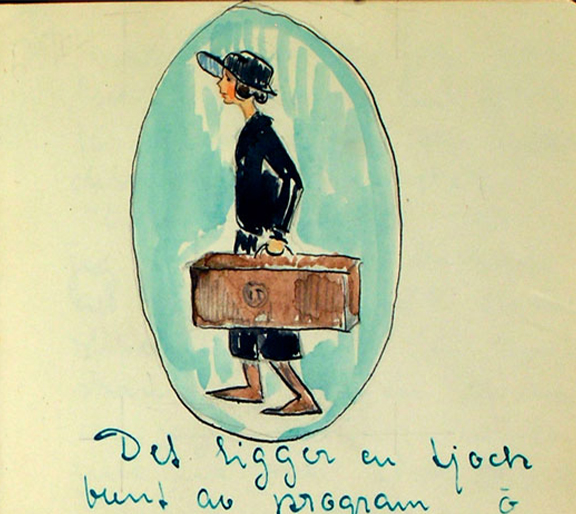 Det ligger en tjock
bunt av program ö